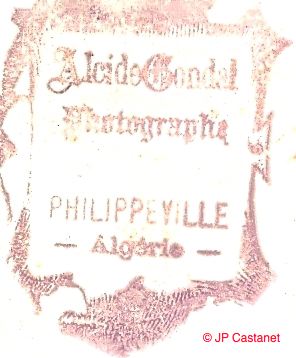 Alcide Gondal
Photographe
PHILIPPEVILLE
— Algérie —
© JP Castanet